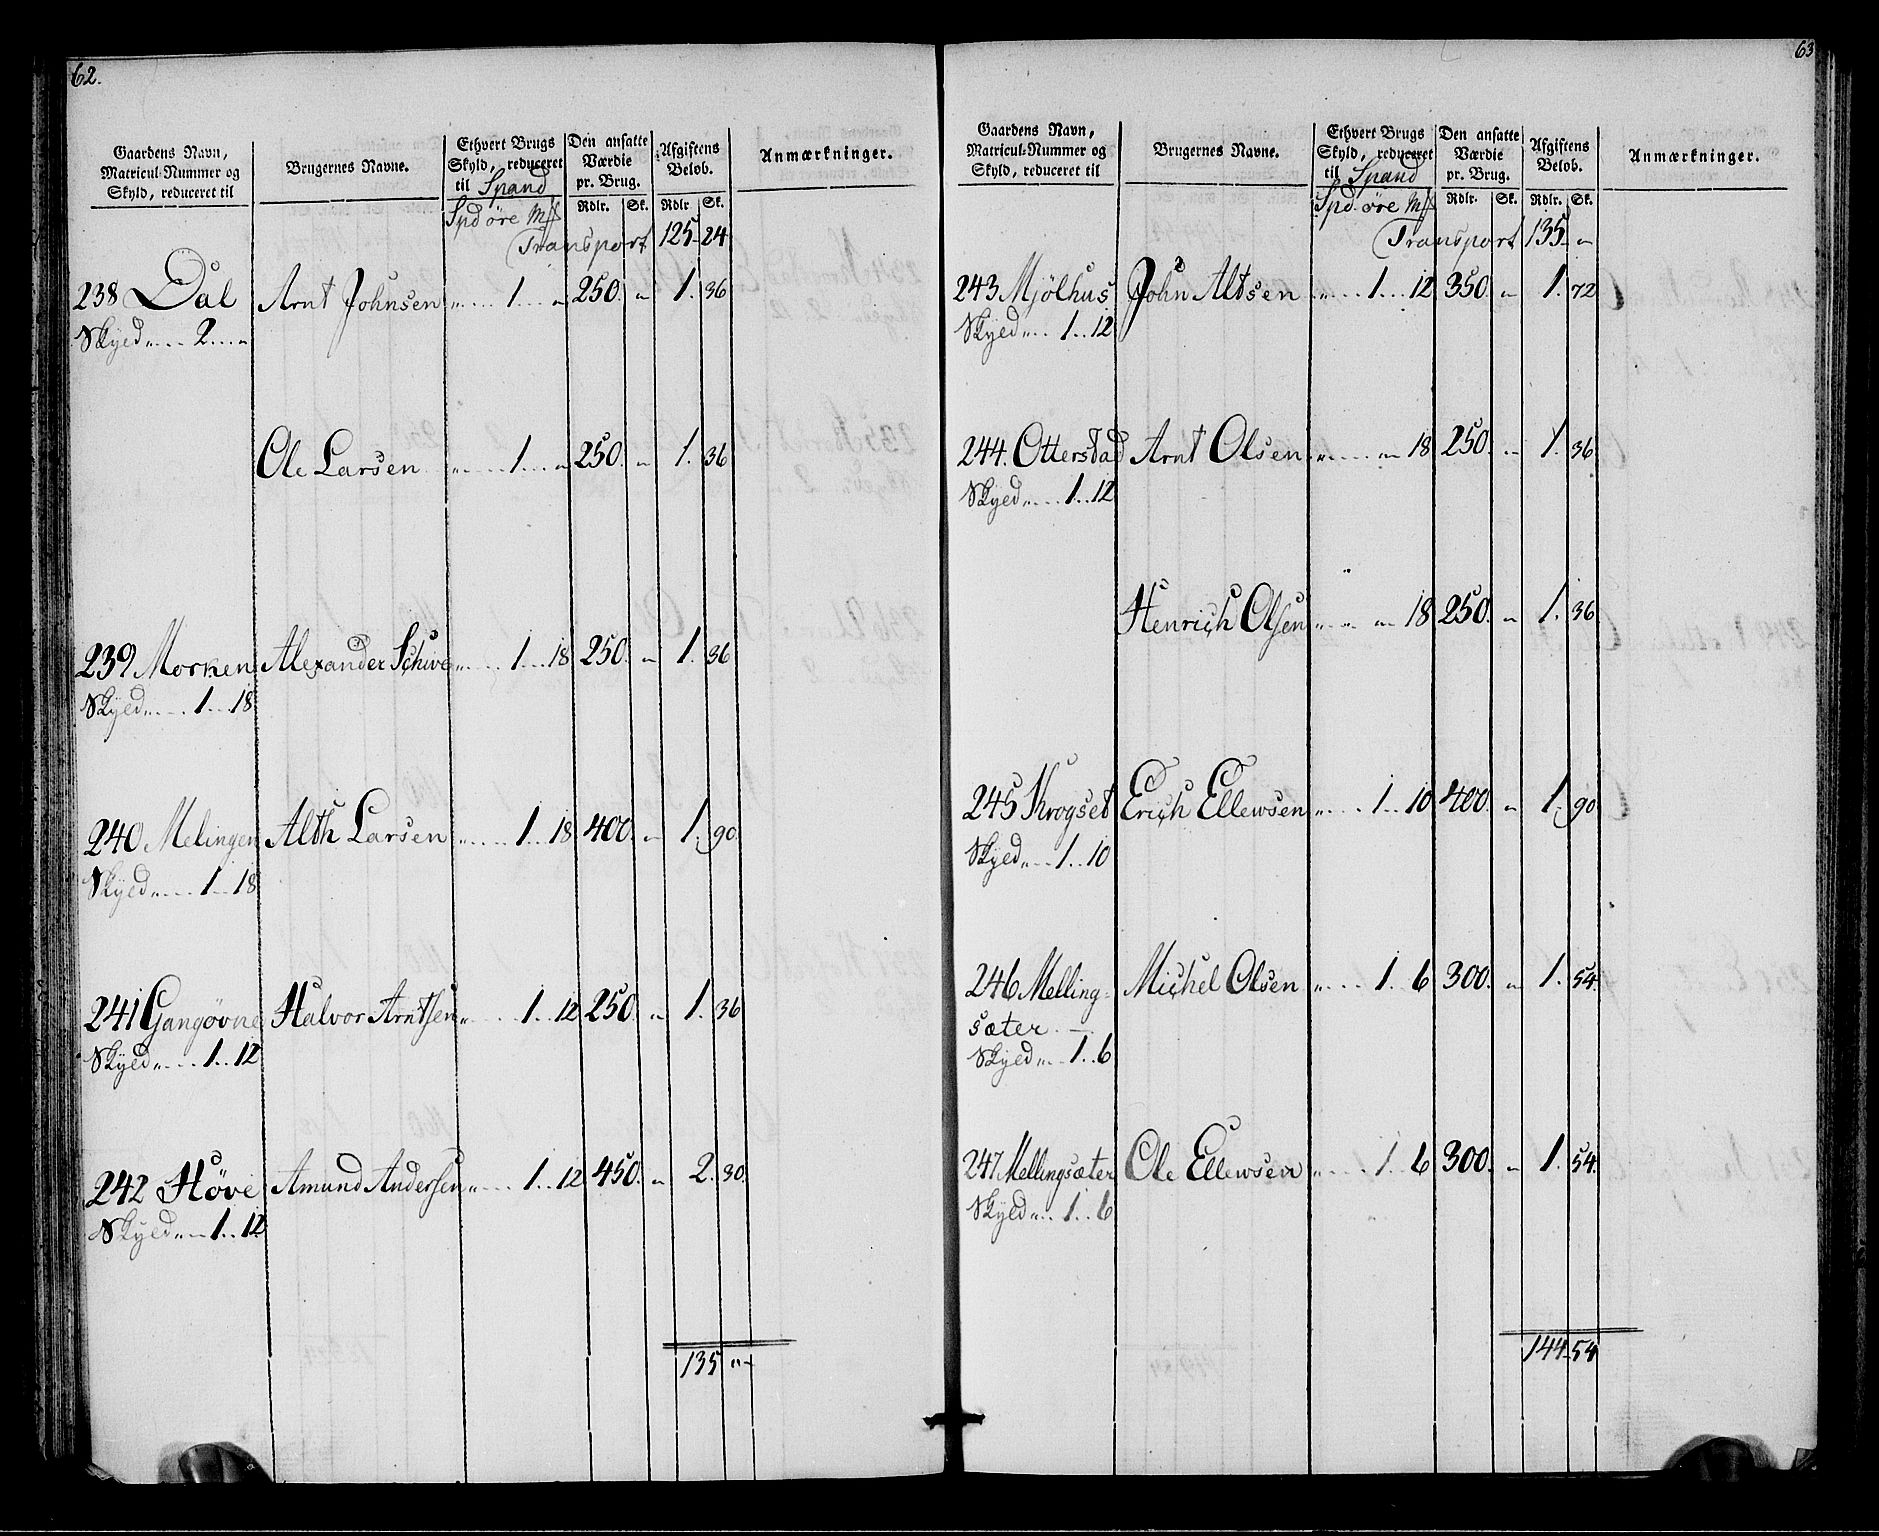 62.
Gaardens Navn, Matricul-Nummer og Skyld, reduceret til | Brugernes Navne. | Ethvert Brugs Skyld, reduceret til Spand | Den ansatte Værdie pr. Brug. | Afgiftens Belob. | Anmærkninger.
Spd öre | Rdlr. | Sk. | Rdlr | Sk.
Transport 125 - 24
238 Dal Arnt Johnsen „ 1 „ 250. „ 1. 36
Skyld „ 2 „
Ole Larsen „ 1 „ 250. „ 1. 36
239 Morken Alexander Schive „ 1 18 250. „ 1. 36
Skyld „ 1 18
240 Melingen Alth Larsen „ 1 18 400. „ 1. 90
Skyld „ 1 18
241 Gangövne Halvor Arntsen „ 1 12 250. „ 1. 36
Skyld „ 1 12
242 Höve Amund Andersen „ 1 12 450. „ 2. 30.
Skyld „ 1 12
135 „
63
Gaardens Navn, Matricul-Nummer og Skyld, reduceret til | Brugernes Navne. | Ethvert Brugs Skyld, reduceret til Spand | Den ansatte Værdie pr. Brug. | Afgiftens Belob. | Anmærkninger.
Spd. öre | Rdlr. | Sk. | Rdlr. | Sk.
Transport 135 „
243 Mjölhus John Altsen „ 1 12 350. „ 1. 72
Skyld „ 1 12
244. Otterstad Arnt Olsen „ „ 18 250. „ 1. 36.
Skyld „ 1 12
Henrich Olsen „ „ 18 250. „ 1. 36
245 Krogset Erich Ellewsen „ 1 10 400. „ 1. 90
Skyld „ 1 10
246 Melling- Michel Olsen „ 1. 6 300. „ 1. 54.
sæter
Skyld „ 1 6
247. Mellingsæter Ole Ellewsen „ 1. 6 300. „ 1. 54.
Skyld „ 1 6
144 54